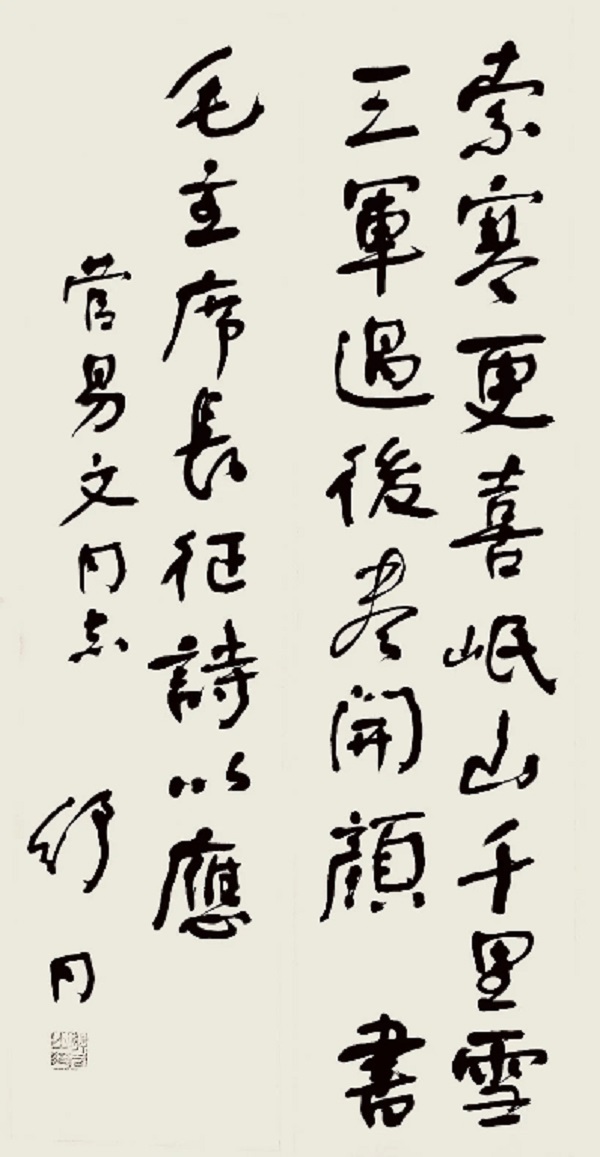 索寒更喜岷山千里雪
三軍過後尽開顔 書
毛主席長征詩以應
管易文同志 舒同